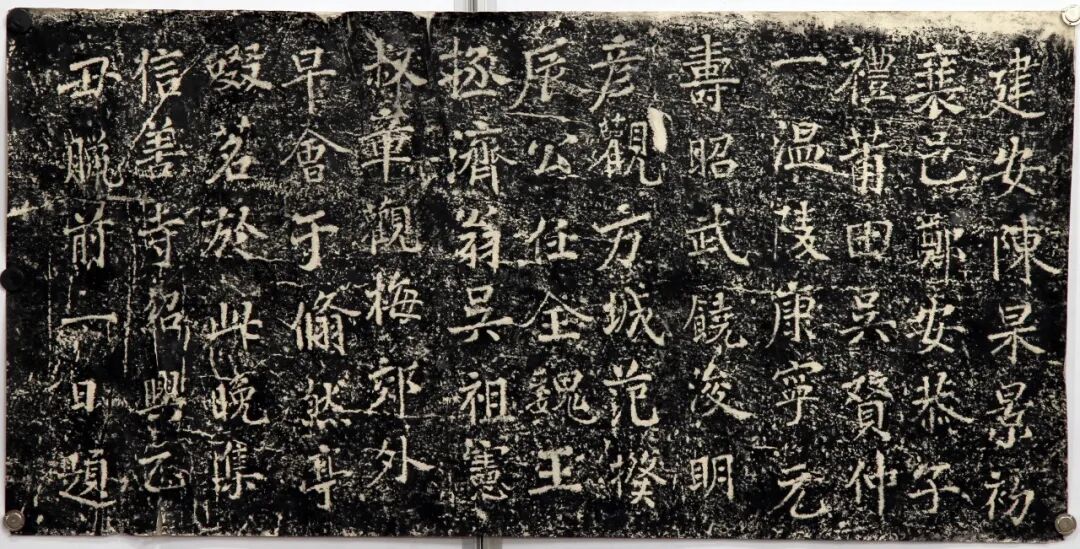 建安陳杲景初
襄邑鄭安恭子
禮莆田吳贇仲
一温陵康寧元
壽昭武饒浚明
彦觀方城范揆
辰公任全魏王
拯濟翁吳祖憲
叔章觀梅郊外
早會于翛然亭
啜茗於此晚集
信善寺紹興乙
丑臘前一日題